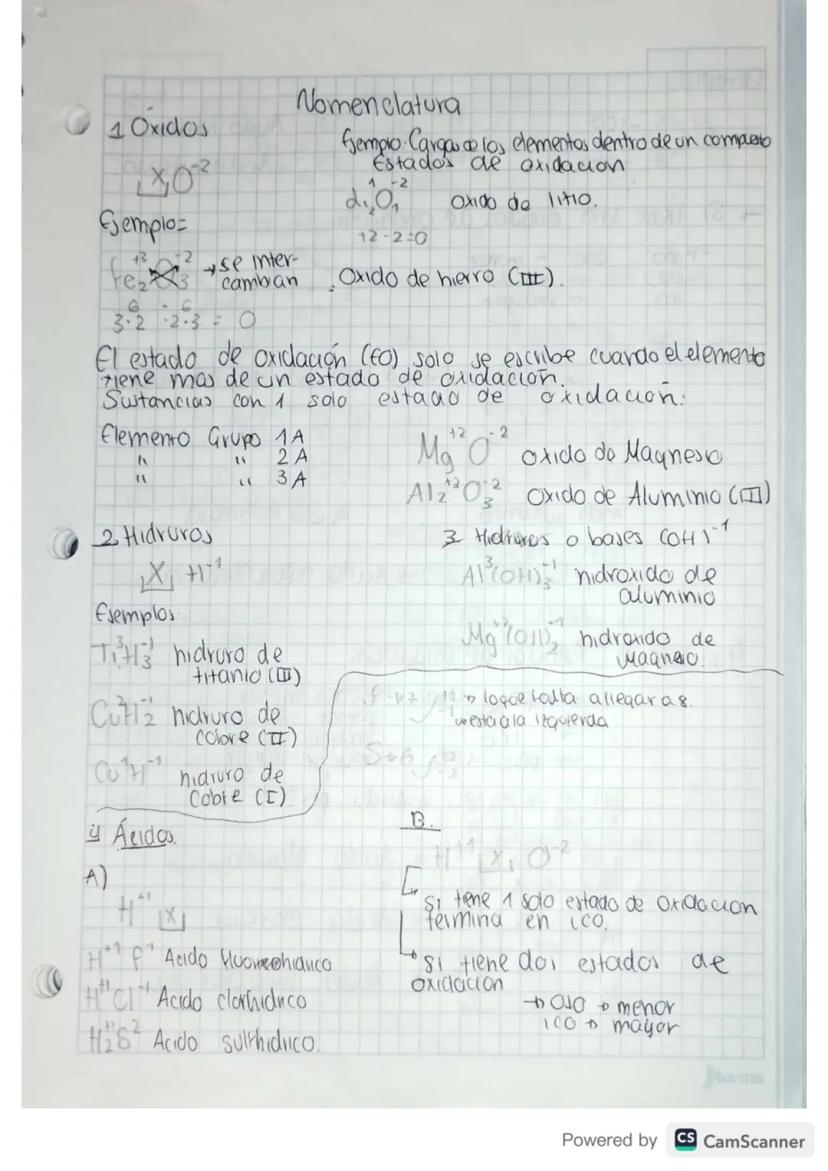 Nomenclatura
1 Óxidos
X O⁻²
Ejemplo=
Fe₂⁺³O₃⁻² → se inter-
cambian
Oxido de hierro (III).
3·2 -2·3 = 0
6 - 6
Ejemplo: Cargas de los elementos dentro de un compuesto
Estados de oxidacion
Li₂¹O₁⁻² Oxido de litio.
12-2=0
El estado de oxidación (EO) solo se escribe cuando el elemento
tiene mas de un estado de oxidación.
Sustancias con 1 solo estado de oxidación:
Elemento Grupo 1A
" " 2A
" " 3A
Mg⁺²O⁻² oxido de Magnesio
Al₂⁺²O₃⁻² oxido de Aluminio (III)
2 Hidruros
X H⁻¹
Ejemplos
Ti³H₃⁻¹ hidruro de
titanio (III)
Cu²H₂⁻¹ hidruro de
cobre (II)
Cu¹H⁻¹ hidruro de
Cobre (I)
3 o bases (OH)⁻¹
Al³(OH)₃⁻¹ hidroxido de
aluminio
Mg⁺²(OH)₂⁻¹ hidroxido de
Magnesio.
→ lo que falta a llegar a 8.
esta a la izquierda
S
Ácidos
A)
H⁺¹ X
H⁺¹F⁻¹ Acido
H⁺¹Cl⁻¹ Acido clorhidrico
H₂⁺¹S² Acido sulfhidrico.
B.
H⁺¹ X, O⁻²
Si tiene 1 solo estado de oxidacion
termina en ico.
Si tiene dos estados de
oxidacion
→ OSO → menor
ICO → mayor
norma
Powered by CS CamScanner